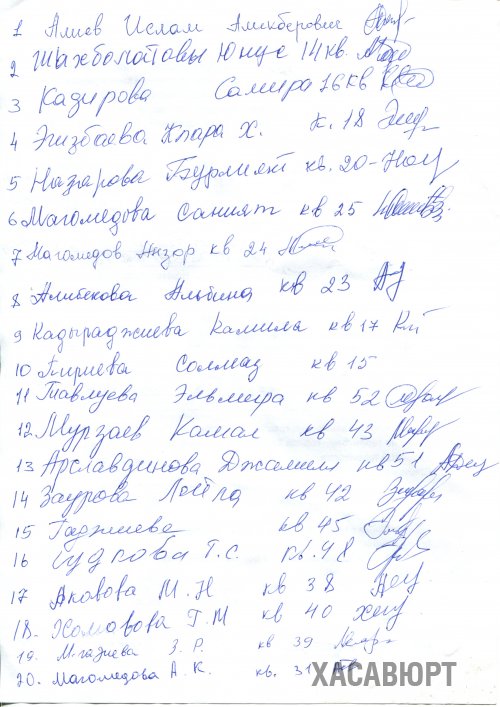 1 Алиев Ислам Аликберович
2 Шахболатовы Юнус 14 кв.
3 Кадирова Самира 16 кв
4 Эгизбаева Клара Х. к. 18
5 Назарова Бурлият кв. 20
6 Магомедова Саният кв 25
7 Магомедов Низор кв 24
8 Алибекова Альбина кв 23
9 Кадыраджиева Камила кв 17
10 Пириева Солмаз кв 15
11 Тавлуева Эльмира кв 52
12 Мурзаев Камал кв 43
13 Арславдинова Джамиля кв 51
14 Заурова Лейла кв 42
15 Гаджиева кв 45
16 Т.С. кв. 48
17 Акавова М.Н кв 38
18. Г.М кв 40
19. З.Р. кв 39
20. Магомедова А.К. кв. 31
ХАСАВЮРТ